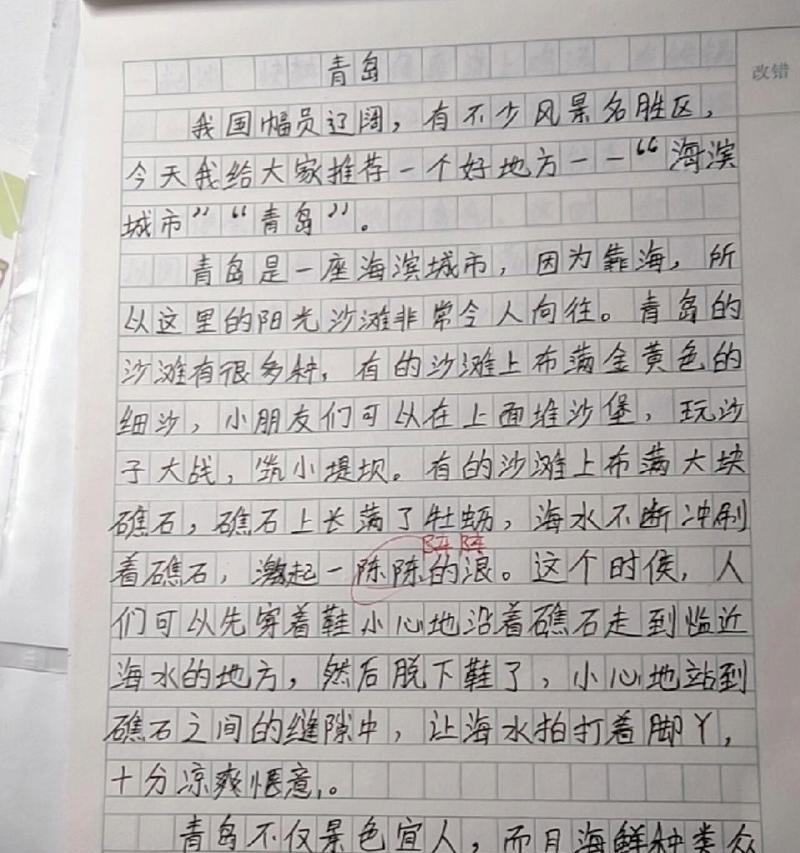 青岛
改错
我国幅员辽阔，有不少风景名胜区，
今天我给大家推荐一个好地方——“海滨
城市”“青岛”。
青岛是一座海滨城市，因为靠海，所
以这里的阳光沙滩非常令人向往。青岛的
沙滩有很多种，有的沙滩上布满金黄色的
细沙，小朋友们可以在上面堆沙堡，玩沙
子大战，筑小堤坝。有的沙滩上布满大块
礁石，礁石上长满了牡蛎，海水不断冲刷
阵阵
着礁石，激起一陈陈的浪。这个时候，人
们可以先穿着鞋小心地沿着礁石走到临近
海水的地方，然后脱下鞋了，小心地站到
礁石之间的缝隙中，让海水拍打着脚丫，
十分凉爽惬意。
青岛不仅景色宜人，而且海鲜种类众